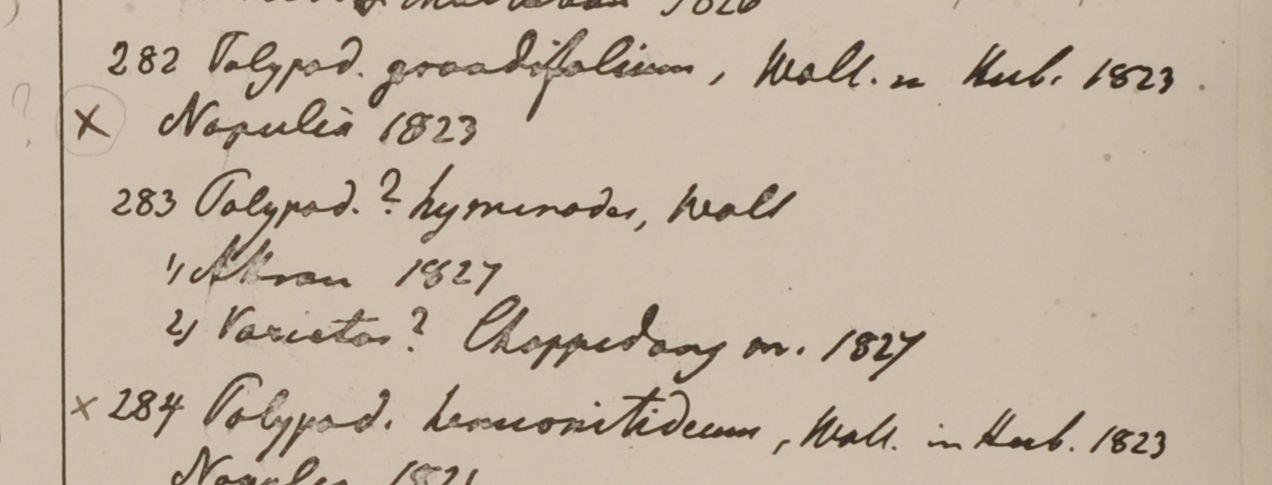 1826
282 Polypod. grandifolium, Wall. in Herb. 1823.
? × Napalia 1823
283 Polypod. ? hymenodes, Wall
1) Attran 1827
2) Varietas? Chappedong m. 1827
× 284 Polypod. hemionitideum, Wall. in Herb. 1823
Napalia 1821